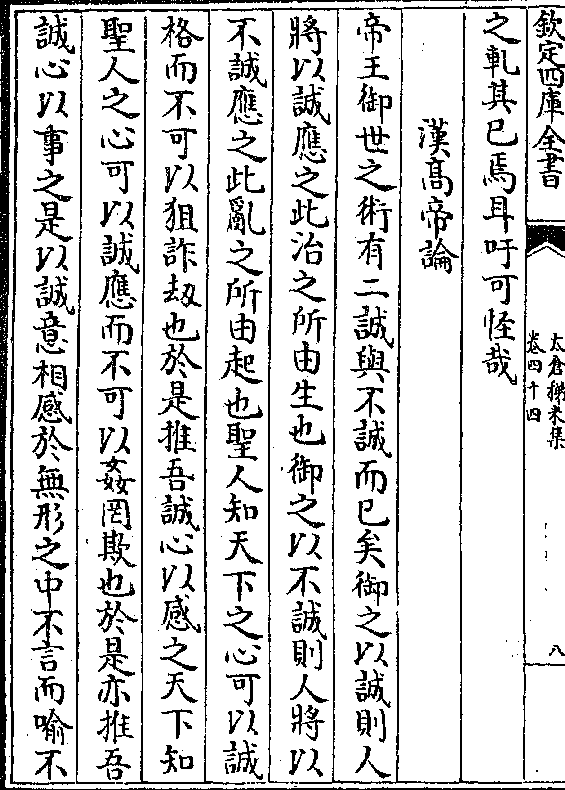 欽定四庫全書
太倉稊米集
卷四十四
八
之軌其已焉耳吁可怪哉
漢髙帝論
帝王御世之術有二誠與不誠而已矣御之以誠則人
將以誠應之此治之所由生也御之以不誠則人將以
不誠應之此亂之所由起也聖人知天下之心可以誠
格而不可以狙詐刼也於是推吾誠心以感之天下知
聖人之心可以誠應而不可以姦罔欺也於是亦推吾
誠心以事之是以誠意相感於無形之中不言而喻不